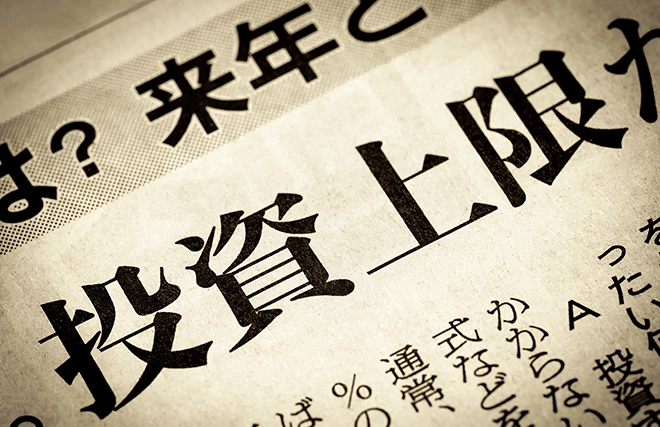 は？ 来年と
投資上限
を
ったい
投資
A
かからない
式などを
通常、
%の
ば